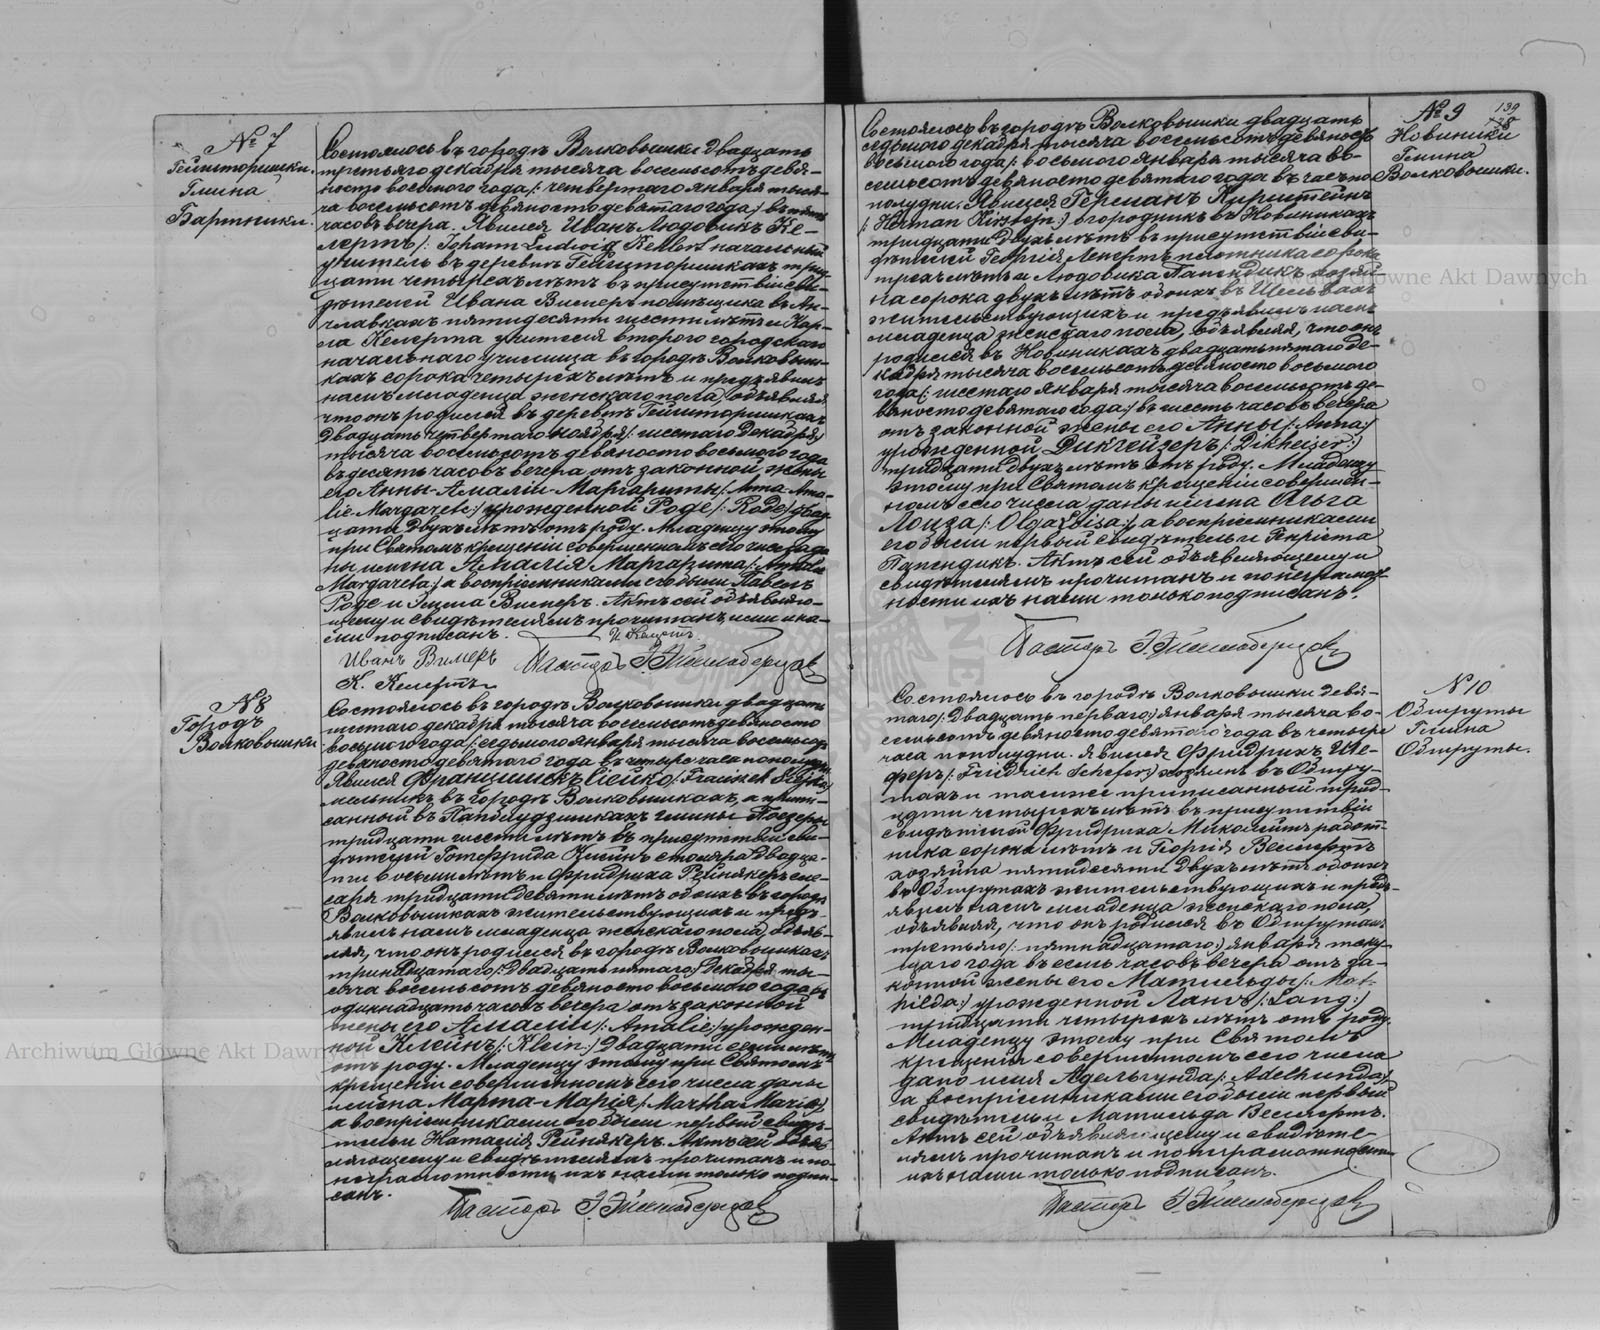 № 7
Гейшторишки.
Гмина
Бартники.
Состоялось въ городѣ Волковышки двадцать
третьяго декабря тысяча восемьсотъ девя-
носто восьмого года /: четвертаго января тыся-
ча восемьсотъ девяносто девятаго года :/ въ пять
часовъ вечера. Явился Иванъ Людовикъ Ке-
лертъ /: Johann Ludwig Kellert начальный
учитель въ деревнѣ Гейшторишкахъ трид-
цати четырехъ лѣтъ въ присутствіи сви-
дѣтелей Ивана Вимеръ помѣщика въ Ан-
главкахъ пятидесяти шести лѣтъ и Кар-
ла Келерта учителя второго городского
начальнаго училища въ городѣ Волковыш-
кахъ сорока четырехъ лѣтъ и предъявилъ
намъ младенца женскаго пола, объявляя
что онъ родился въ деревнѣ Гейшторишкахъ
двадцать четвертаго ноября /: шестаго декабря :/
тысяча восемьсотъ девяносто восьмого года
въ десять часовъ вечера отъ законной жены
его Анны-Амаліи-Маргариты /: Anna-Ama-
lie-Margarete :/ урожденной Роде /: Rode :/ двад-
цати двухъ лѣтъ отъ роду. Младенцу этому
при Святомъ крещеніи совершенномъ сего числа да-
ны имена Амалія Маргарита /: Amalie
Margareta :/ а воспріемниками его были Павелъ
Роде и Эмма Вимеръ. Актъ сей объявляю-
щему и свидѣтелямъ прочитанъ, ими и на-
ми подписанъ.
И. Келертъ.
Иванъ Вимеръ
К. Келертъ
Пасторъ
№ 8
Городъ
Волковышки
Состоялось въ городѣ Волковышки двадцать
шестаго декабря тысяча восемьсотъ девяносто
восьмого года /: седьмого января тысяча восемьсотъ
девяносто девятаго года въ четыре часа пополудни.
Явился Францишекъ Сѣйко /: Franciszek Siejko :/
мельникъ въ городѣ Волковышкахъ, а припи-
санный въ гмины
тридцати шести лѣтъ въ присутствіи сви-
дѣтелей Готфрида Клейнъ столяра двадца-
ти восьми лѣтъ и Фридриха Рейнякеръ сле-
саря тридцати девяти лѣтъ обоихъ въ городѣ
Волковышкахъ жительствующихъ и предъ-
явилъ намъ младенца женскаго пола, объяв-
ляя, что онъ родился въ городѣ Волковышкахъ
тринадцатаго /: двадцать пятаго :/ декабря ты-
сяча восемьсотъ девяносто восьмого года въ
одиннадцать часовъ вечера отъ законной
жены его Амаліи /: Amalie :/ урожден-
ной Клейнъ /: Klein :/ двадцати семи лѣтъ
отъ роду. Младенцу этому при Святомъ
крещеніи совершенномъ сего числа даны
имена Марта-Марія /: Martha Maria :/
а воспріемниками его были первый свидѣ-
тель и Наталія Рейнякеръ. Актъ сей объяв-
ляющему и свидѣтелямъ прочитанъ и по
неграмотности ихъ нами только подпи-
санъ.
Пасторъ
№ 9
Новиники
Гмина
Волковышки.
139
Состоялось въ городѣ Волковышки двадцать
седьмого декабря тысяча восемьсотъ девяносто
восьмого года /: восьмого января тысяча во-
семьсотъ девяносто девятаго года въ часъ по
полудни. Явился Германъ Кирштейнъ
/: Herman Kirstejn :/ огородникъ въ Новиникахъ
тридцати двухъ лѣтъ въ присутствіи сви-
дѣтелей Георгія Ленертъ плотника сорока
трехъ лѣтъ и Людовика Папендикъ хозяй-
на сорока двухъ лѣтъ обоихъ въ Шельвахъ
жительствующихъ и предъявилъ намъ
младенца женскаго пола, объявляя, что онъ
родился въ Новиникахъ двадцать пятаго де-
кабря тысяча восемьсотъ девяносто восьмого
года /: шестаго января тысяча восемьсотъ де-
вяносто девятаго года :/ въ шесть часовъ вечера
отъ законной жены его Анны /: Anna :/
урожденной Дикгейзеръ /: Dikheiser :/
тридцати двухъ лѣтъ отъ роду. Младенцу
этому при Святомъ крещеніи совершен-
номъ сего числа даны имена Ольга
Лоиза /: Olga Loisa :/, а воспріемниками
его были первый свидѣтель и Генріета
Папендикъ. Актъ сей объявляющему и
свидѣтелямъ прочитанъ и по неграмот-
ности ихъ нами только подписанъ.
Пасторъ
№ 10
Обшруты
Гмина
Обшруты.
Состоялось въ городѣ Волковышки девя-
таго /: двадцать перваго :/ января тысяча во-
семьсотъ девяносто девятаго года въ четыре
часа пополудни. Явился Фридрихъ Ше-
феръ /: Fridrich Schefer :/ хозяинъ въ Обшру-
тахъ и тамже приписанный трид-
цати четырехъ лѣтъ въ присутствіи
свидѣтелей Фридриха Миколейтъ работ-
ника сорока лѣтъ и Георгія Веллертъ
хозяина пятидесяти двухъ лѣтъ обоихъ
въ Обшрутахъ жительствующихъ и предъ-
явилъ намъ младенца женскаго пола,
объявляя, что онъ родился въ Обшрутахъ
третьяго /: пятнадцатаго :/ января теку-
щаго года въ семь часовъ вечера отъ за-
конной жены его Матильды /: Mat-
hilda :/ урожденной Лангъ /: Lang :/
тридцати четырехъ лѣтъ отъ роду.
Младенцу этому при Святомъ
крещеніи совершенномъ сего числа
дано имя Адельгунда /: Adelhunda :/
а воспріемниками его были первый
свидѣтель и Матильда Веллертъ.
Актъ сей объявляющему и свидѣте-
лямъ прочитанъ и по неграмотности
ихъ нами только подписанъ.
Пасторъ
Archiwum Główne Akt Dawnych
Główne Akt Dawnych